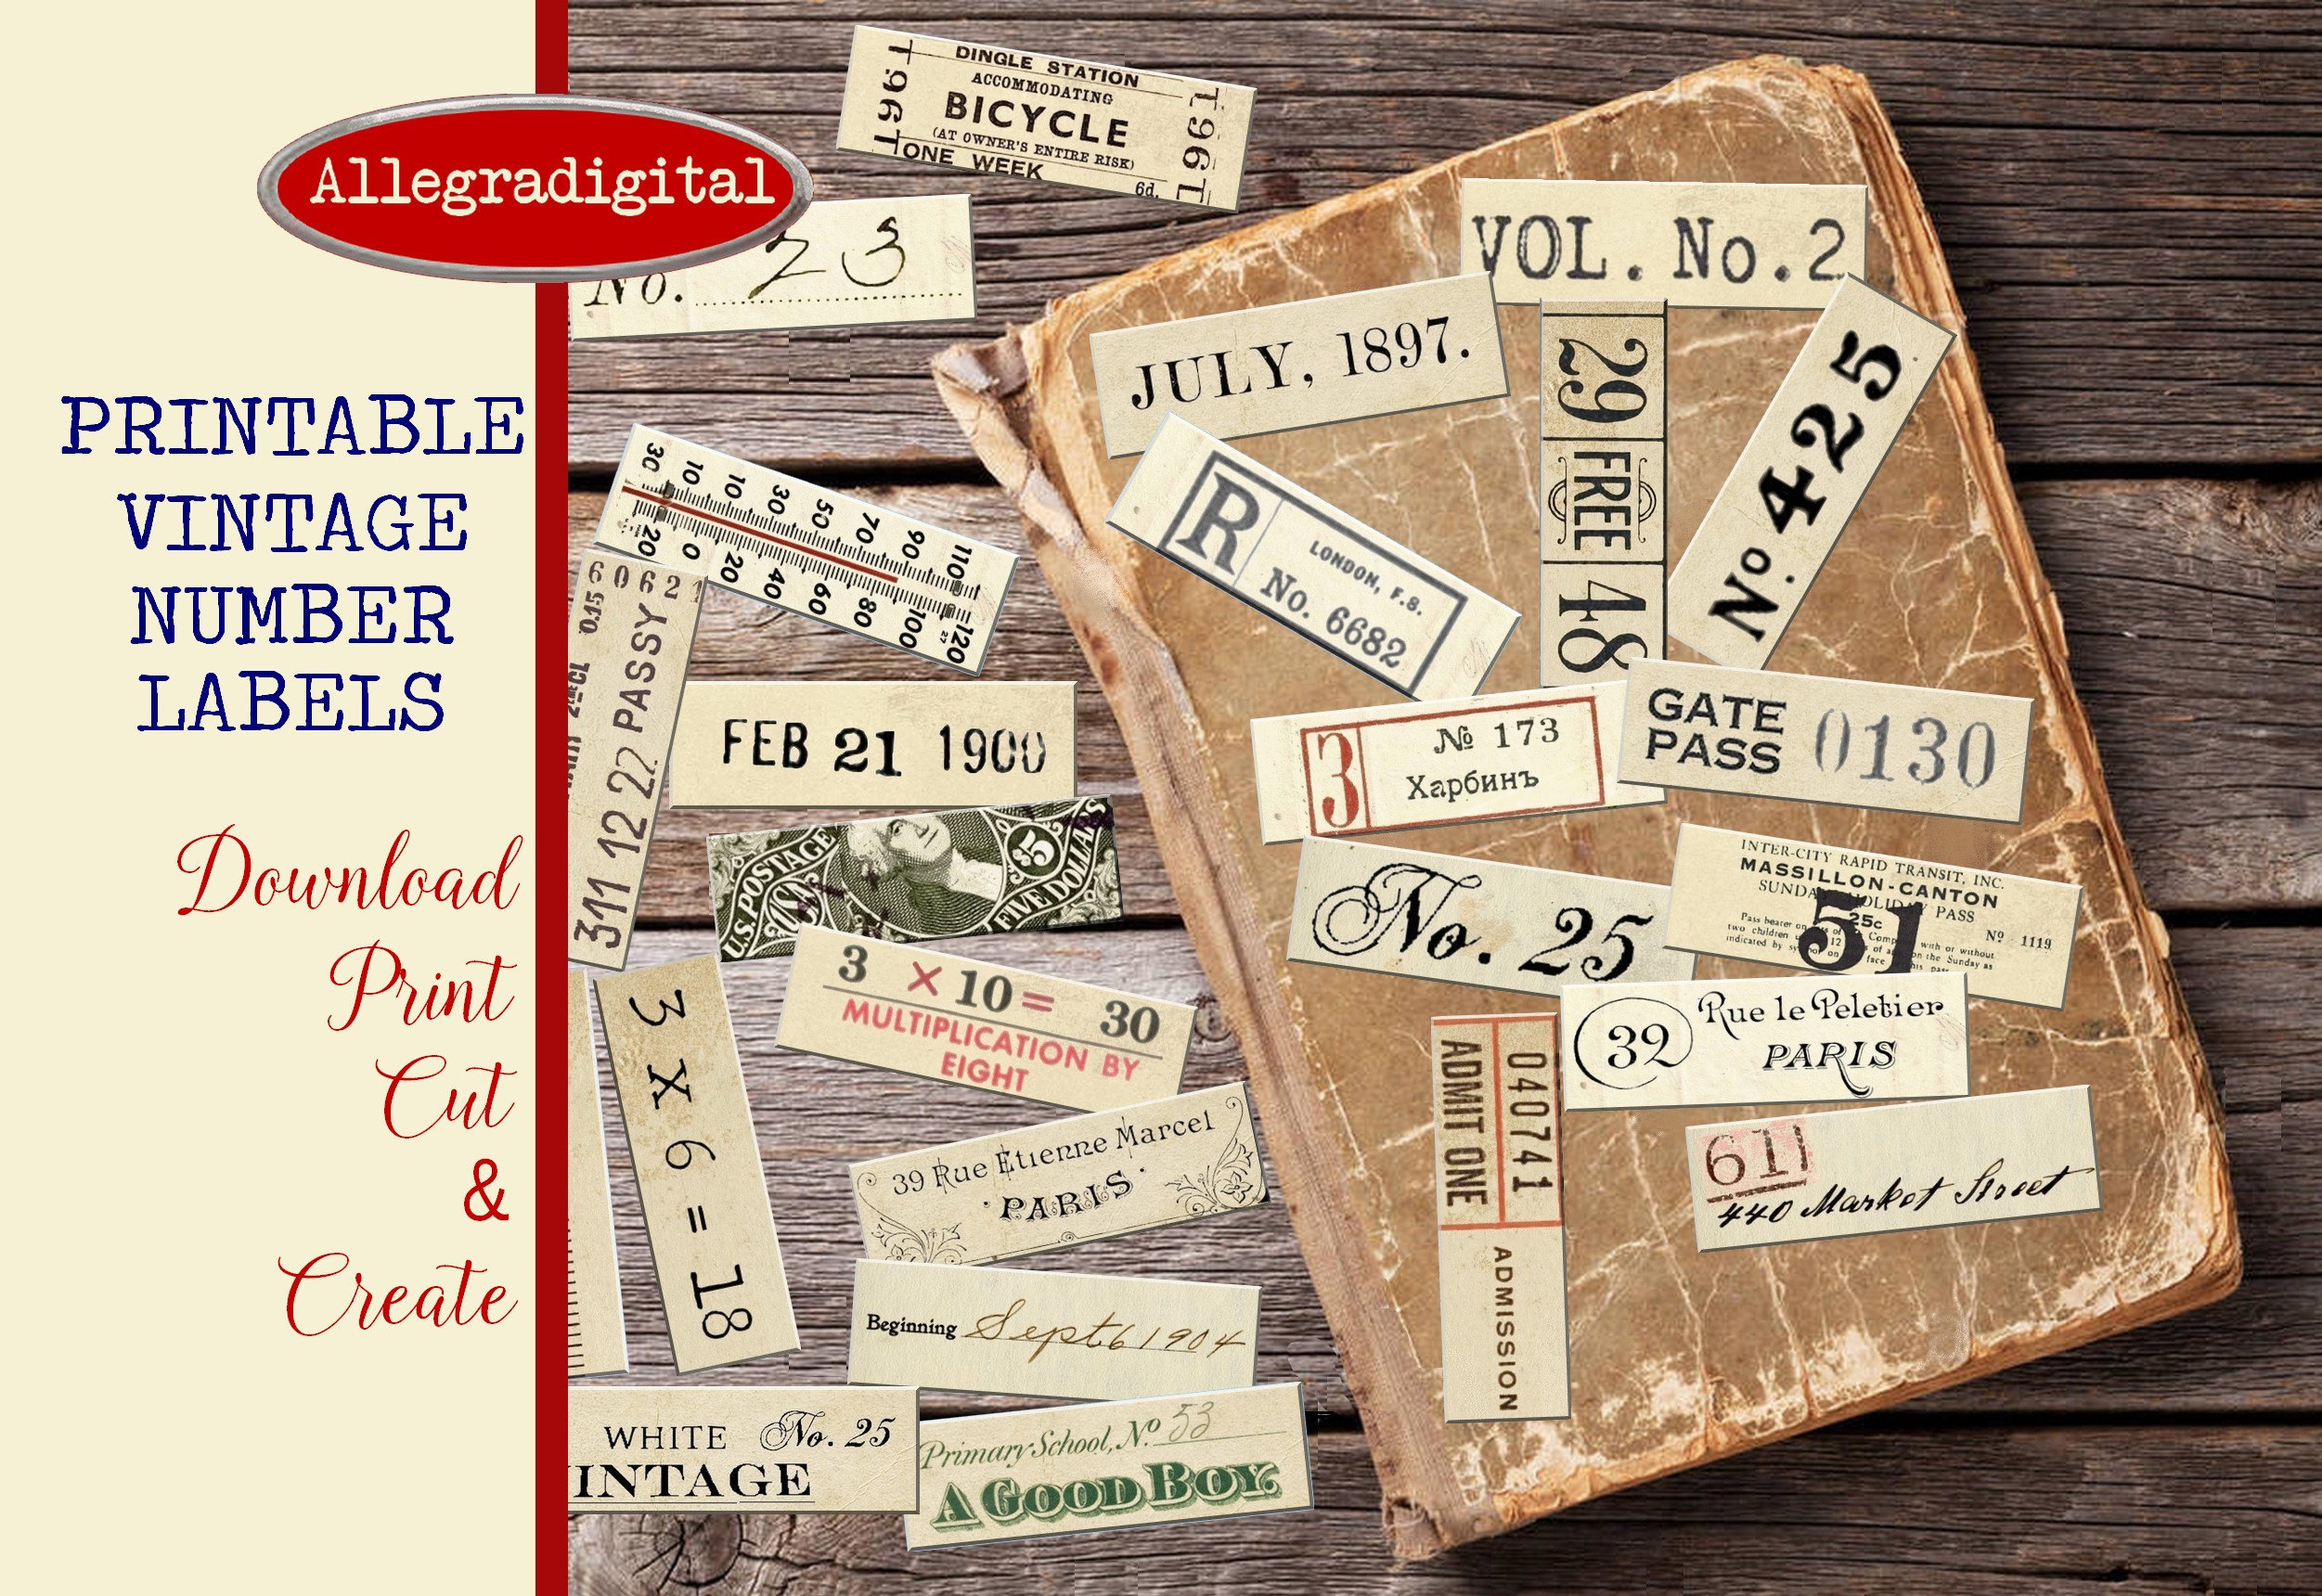 Allegradigital
PRINTABLE
VINTAGE
NUMBER
LABELS
Download
Print
Cut
&
Create
DINGLE STATION
ACCOMMODATING
BICYCLE
(AT OWNER'S ENTIRE RISK)
ONE WEEK
6d.
T961
T961
No. 23
30 10 10 30 50 70 90 110
20 0 20 40 60 80 100 120
60621
0.15
PASSY
311 12 22
FEB 21 1900
U.S. POSTAGE
$5
FIVE DOLLARS
3 X 10 = 30
MULTIPLICATION BY
EIGHT
3 X 6 = 18
39 Rue Etienne Marcel
PARIS
Beginning Sept 6 1904
WHITE No. 25
INTAGE
Primary School, No 53
A GOOD BOY.
VOL. No. 2
JULY, 1897.
29
FREE
48
No 425
R
LONDON, F.S.
No. 6682
3
№ 173
Харбинъ
GATE
PASS
0130
No. 25
INTER-CITY RAPID TRANSIT, INC.
MASSILLON-CANTON
PASS
25c
51
Nº 1119
32
Rue le Peletier
PARIS
ADMIT ONE
040741
ADMISSION
611
440 Market Street